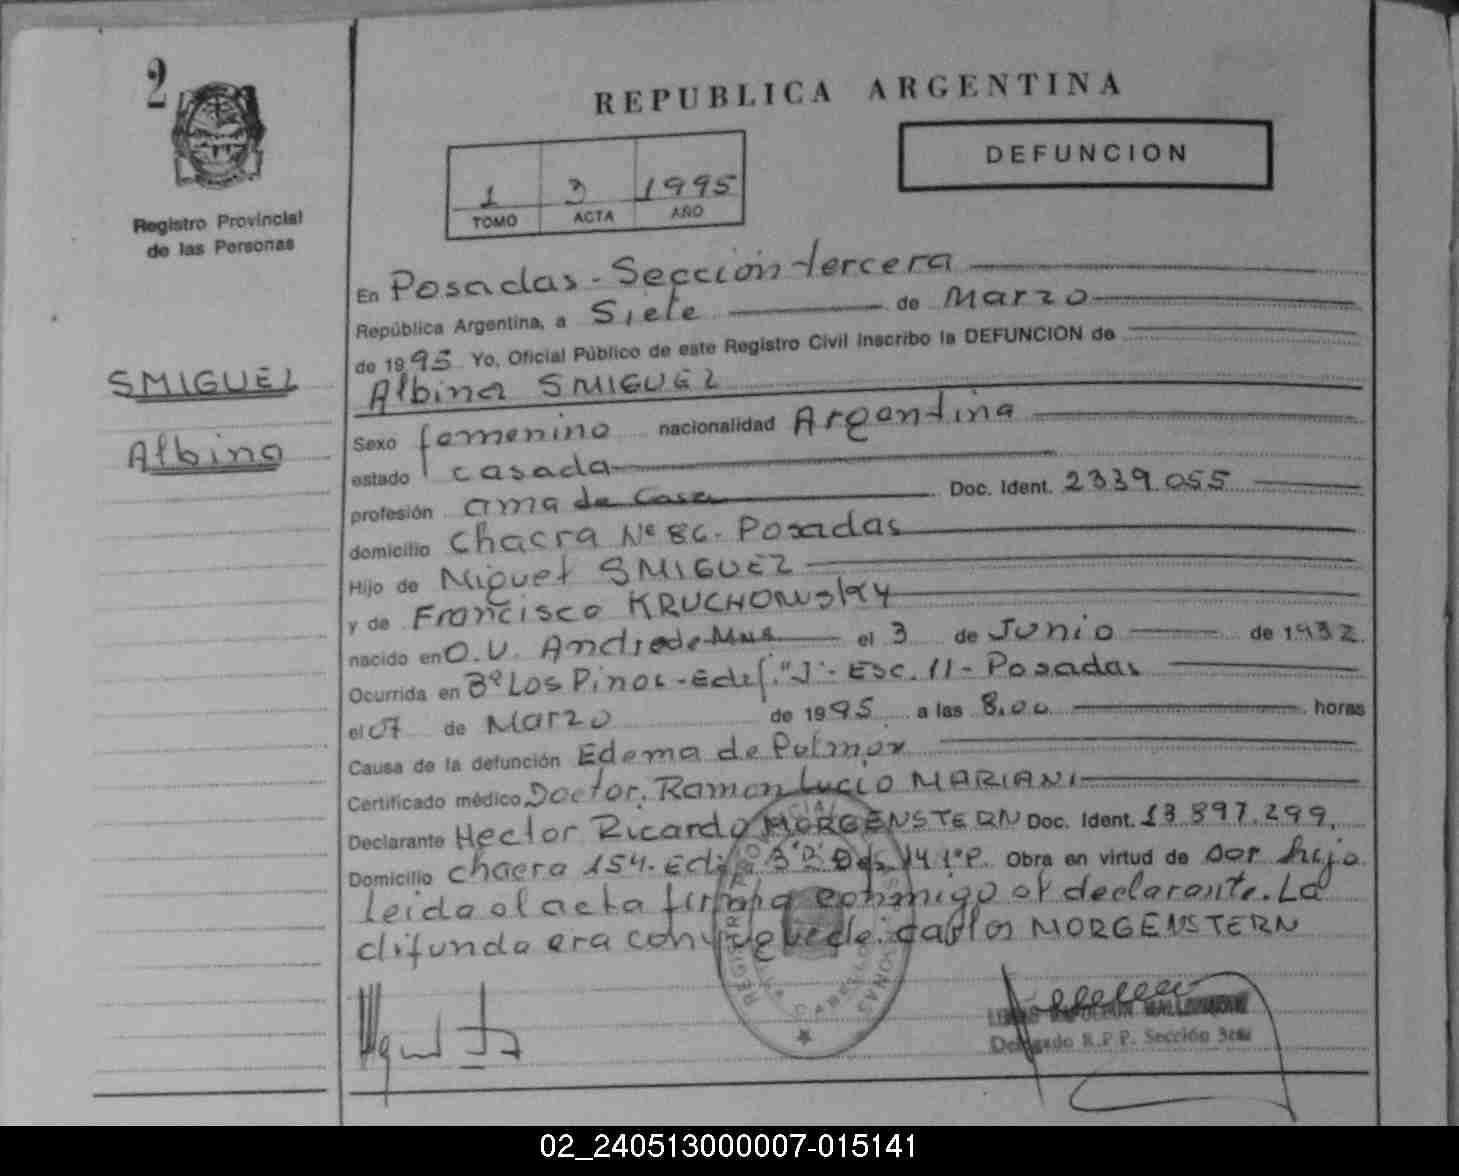 2
REPUBLICA ARGENTINA
DEFUNCION
1 3 1995
TOMO ACTA AÑO
Registro Provincial
de las Personas
SMIGUEL
Albina
En Posadas - Sección tercera
República Argentina, a Siete de Marzo
de 1995 Yo, Oficial Público de este Registro Civil inscribo la DEFUNCION de
Albina SMIGUEL
Sexo femenino nacionalidad Argentina
estado casada
profesión ama de casa Doc. Ident. 2339.055
domicilio chacra Nº 86. Posadas
Hijo de Miguel SMIGUEL
y de Francisco KRUCHOWSKY
nacido en O.V. Andrede Mns el 3 de Junio de 1932
Ocurrida en Bº Los Pinos - Edif. "J" - Esc. 11 - Posadas
el 07 de Marzo de 1995 a las 8,00 horas
Causa de la defunción Edema de Pulmón
Certificado médico Doctor. Ramon Lucio MARIANI
Declarante Hector Ricardo MORGENSTERN Doc. Ident. 13.897.299,
Domicilio chacra 154. Edif. 3 14 1ºP. Obra en virtud de ser hijo.
Leida el acta firma conmigo el declarante. La
difunda era conyuge de: Carlos MORGENSTERN
Delegado R.P.P. Sección 3era
02_240513000007-015141